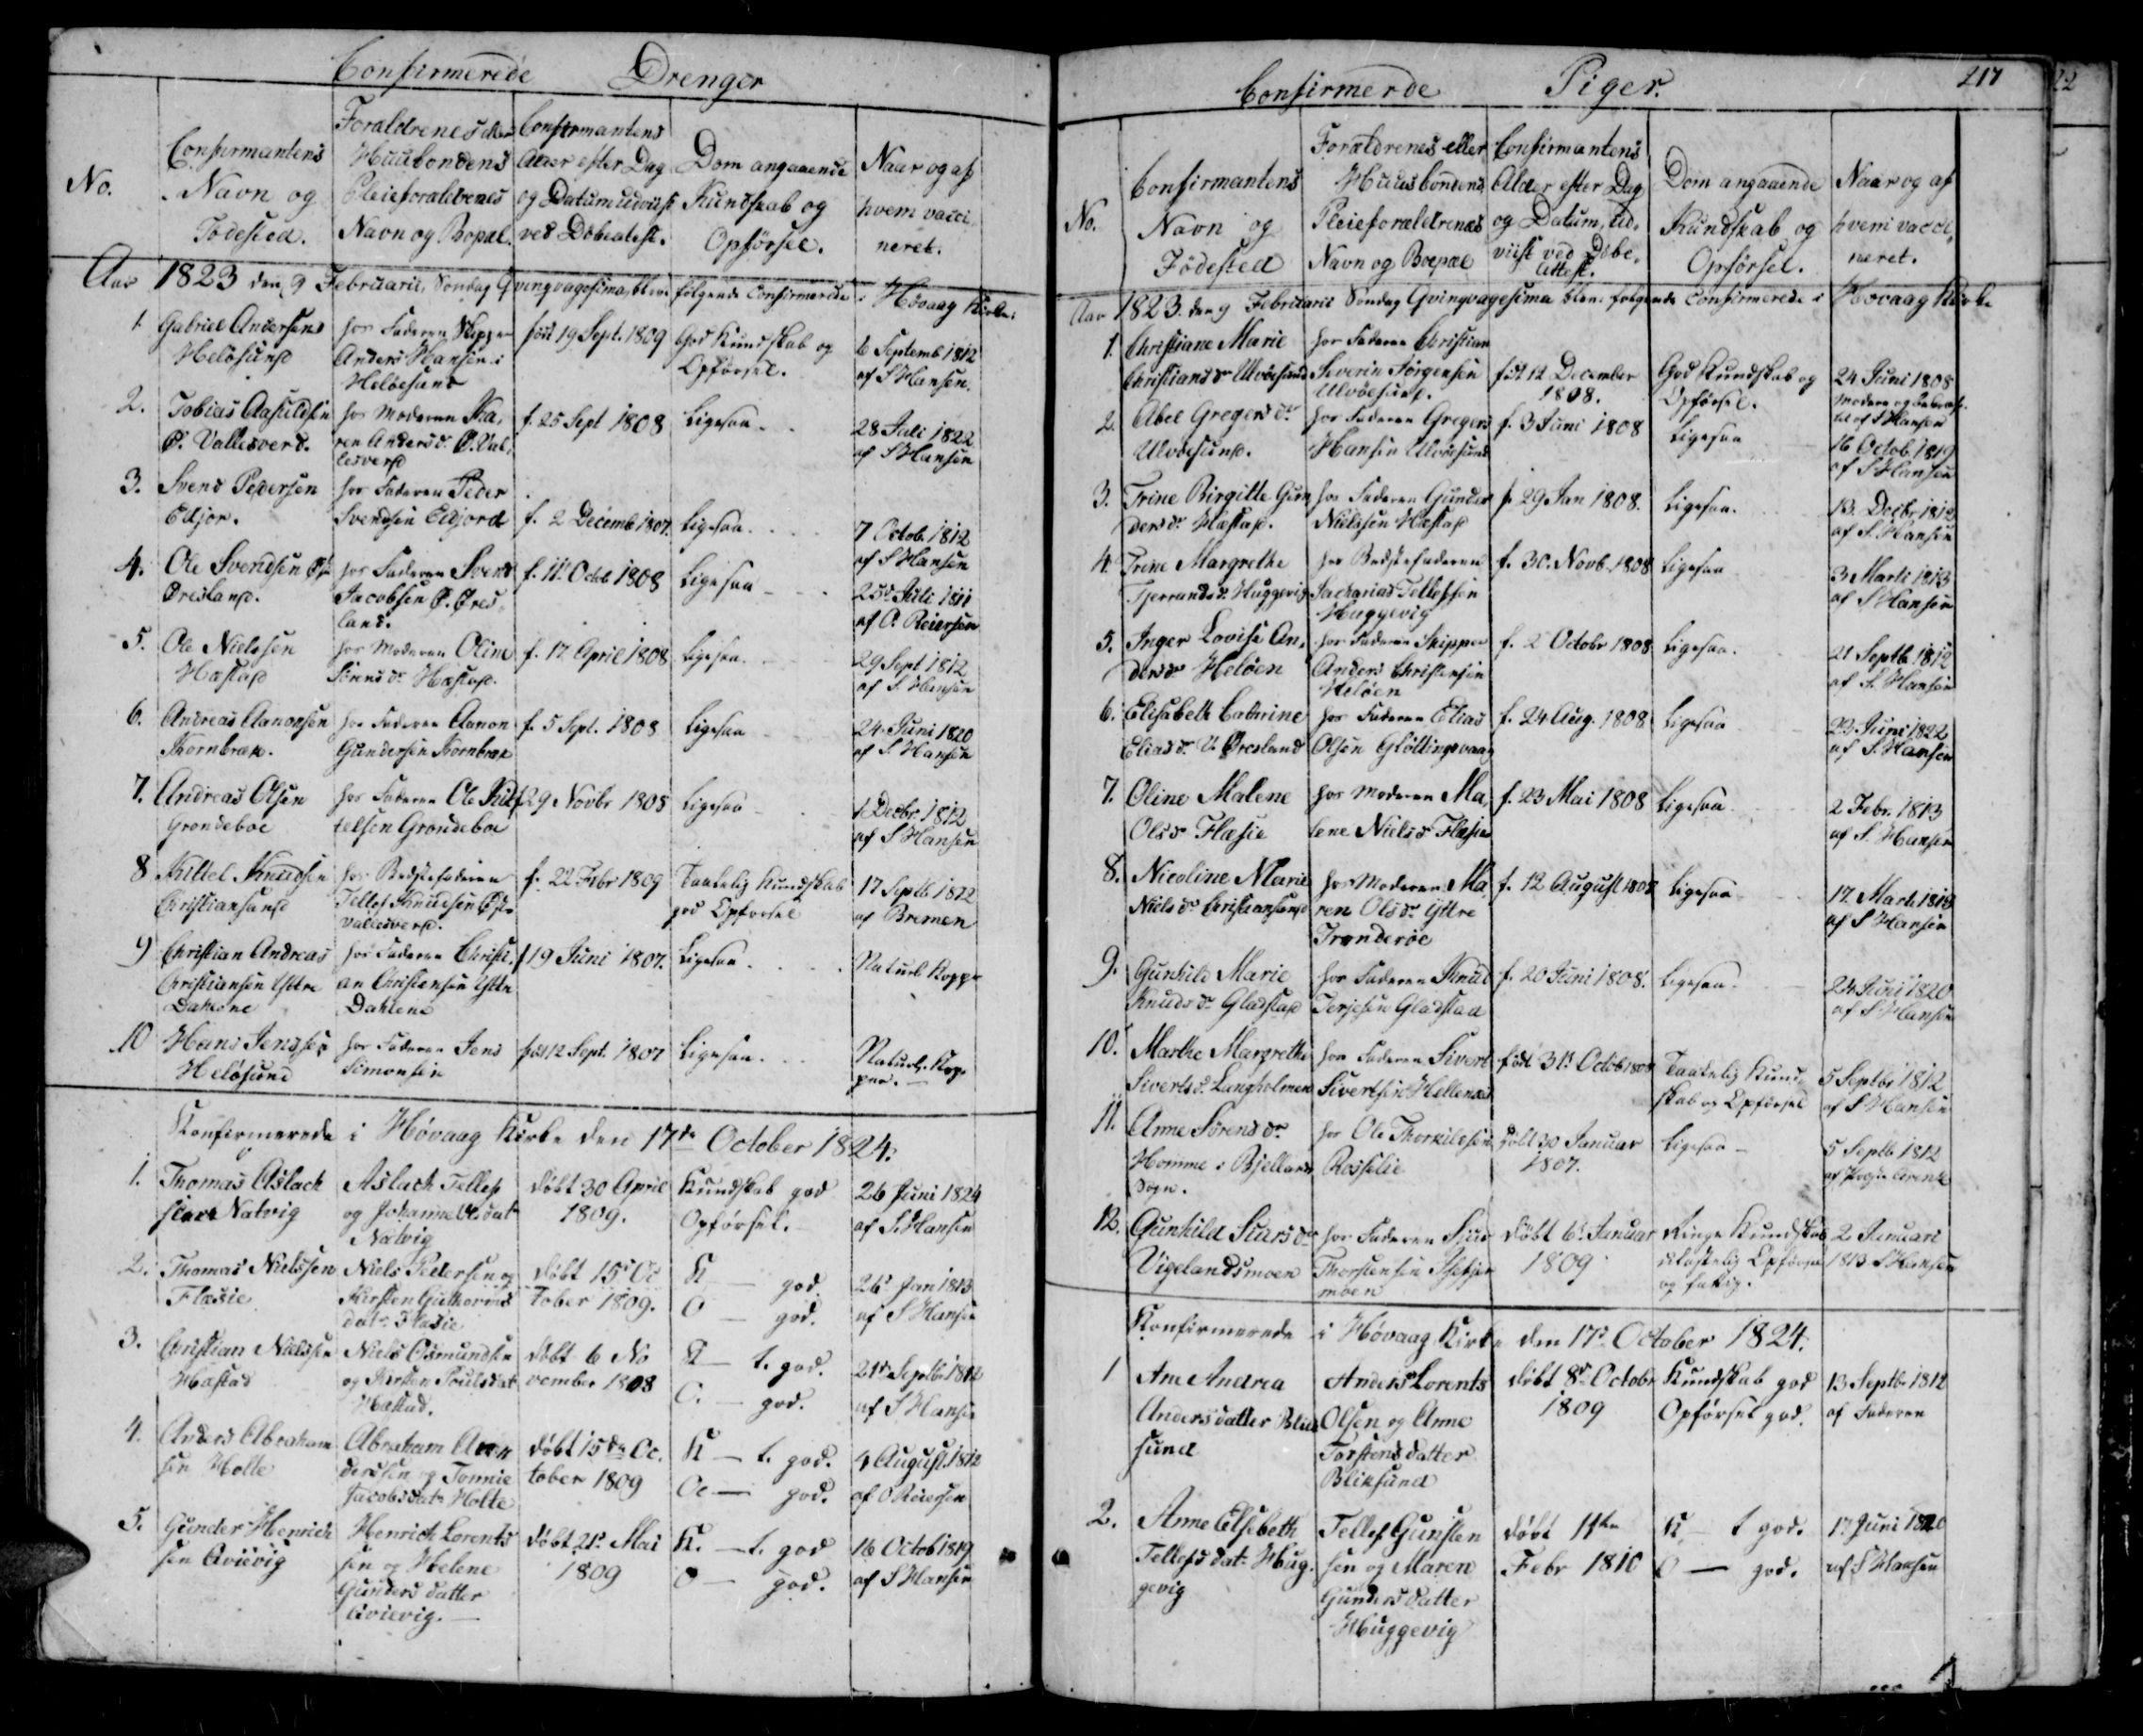 Confirmerede Drenger
No.
Confirmantens
Navn og
Födested.
Forældrenes eller
Huusbondens
Pleieforældrenes
Navn og Bopæl.
Confirmantens
Alder efter Dag
og Datum udviist
ved Döbeatest.
Dom angaaende
Kundskab og
Opförsel.
Naar og af
hvem vacci
neret.
Aar 1823 den 9 Februarii, Söndag Qvingvagesima, bleve fölgende Confirmerede i Hövaag Kirke:
1. Gabriel Andersens
Helösund
hos Faderen Skipper
Anders Hansen i
Helöesund
föd 19 Sept. 1809
God Kundskab og
Opförsel.
6 Septemb 1812
af S Hansen.
2. Tobias Aasuldsen
Ö. Vallesverd.
hos Moderen Ka,
ren Andersd. Ö. Val,
lesverd
f. 25 Sept 1808
Ligesaa
28 Juli 1822
af S Hansen
3. Svend Pedersen
Eidjor.
hos Faderen Peder
Svendsen Eidjord
f. 2 Decemb 1807.
Ligesaa.
7 Octob. 1812
af S Hansen
4. Ole Svendsen Ö
Öresland.
hos Faderen Svend
Jacobsen Ö. Öres,
land.
f. 11 Octob 1808
Ligesaa
25 Juli 1811
af O. Reiersen
5. Ole Nielssen
Hæstad
hos Moderen Oline
Sörensdr Hæstad.
f. 17 April 1808
Ligesaa.
29 Sept 1812
af S. Hansen
6. Andreas Aanonsen
Kornbræk.
hos Faderen Aanon
Gundersen Kornbræk
f. 5 Sept. 1808
Ligesaa
24 Juni 1820
af S. Hansen
7. Andreas Olsen
Gröndeboe
hos Faderen Ole Kit
telsen Gröndeboe
f 29 Novbr 1808
Ligesaa
1 Decbr. 1812
af S Hansen
8 Kittel Knudsen
Christiansand
hos Bedstefaderen
Tellef Knudsen Öst
Vallesverd.
f. 22 Febr 1809
Taalelig Kundskab
god Opförsel
17 Septb 1822
af Bremen
9 Christian Andreas
Christiansen Yttre
Dahlene
hos Faderen Christi,
an Christensen Ytte
Dahlene
f 19 Juni 1807.
Ligesaa
Naturl. Kopper
10 Hans Jenssen
Helösund
hos Faderen Jens
Simonsen
föd 12 Sept. 1807
Ligesaa.
Naturl. Kop,
per.
Konfirmerede i Hövaag Kirke den 17de October 1824.
1. Thomas Aslach
sen Natvig
Aslach Tellefs
og Johanne Olsdat
Natvig
döbt 30 April
1809.
Kundskab god
Opförsel.
26 Juni 1824
af S. Hansen
2. Thomas Nielssen
Flæsie
Niels Pedersen og
Kirsten Guthorms
datr Flæsie
döbt 15 Oc
tober 1809.
K — god.
O — god.
26 Jan 1813
af S Hansen
3. Christian Nielssen
Hæstad
Niels Osmundsen
og Kirsten Poulsdat
Hæstad.
döbt 6 No
vember 1808
K — t. god.
O. — god.
21de Septbr 1812
af S Hansen
4. Anders Abraham
sen Holte
Abraham An
dersen og Tonnie
Jacobsdatr Holte
döbt 15de Oc.
tober 1809
K — t. god.
O — god.
4 August 1812
af O Reiersen
5. Gunder Henrich
sen Qvievig
Henrich Lorents
sen og Helene
Gunders datter
Qvievig.
döbt 21 Mai
1809
K. — t. god
O — god.
16 Octob 1819
af S Hansen
Confirmerde Piger. 217
No.
Confirmantens
Navn og
Födested
Forældrenes eller
Huusbondens
Pleieforældrenes
Navn og Boepæl
Confirmantens
Alder efter Dag
og Datum, ud,
viist ved Döbe,
attest.
Dom angaaende
Kundskab og
Opförsel.
Naar og af
hvem vacci,
neret.
Aar 1823. den 9 Februarii Söndag Qvingvagesima bleve folgende Confirmerede i Hövaag Kirke
1. Christiane Marie
Christiansdr Ulvöesund
hos Faderen Christian
Severin Jörgensen
Ulvöesund.
föd 12 December
1808.
God Kundskab og
Opförsel.
24 Juni 1808
af S Hansen
2. Abel Gregersdr
Ulvöesund.
hos Faderen Gregers
Hansen Ulvöesund
f. 3 Juni 1808
Ligesaa
16 Octob. 1819
af S Hansen
3. Trine Birgitte Gun
dersdr Hæstad.
hos Faderen Gunder
Nielssen Hæstad
f. 29 Jan 1808.
Ligesaa.
13. Decbr 1812
af S. Hansen
4. Trine Margrethe
Tjerrandsdr Huggevig
hos Bedstefaderen
Sacharias Tellefsen
Huggevig
f. 30. Novb. 1808
Ligesaa
3 Martii 1813
af S Hansen
5. Inger Lovise An,
dersdr Helöen
hos Faderen Skipper
Anders Christensen
Helöen
f. 2 Octobr 1808
Ligesaa.
21 Septb 1812
af S. Hansen
6. Elisabeth Cathrine
Eliasdr V. Öresland
hos Faderen Elias
Olsen Glöttingsvaag
f. 24 Aug. 1808
Ligesaa
23 Juni 1822
af S. Hansen
7. Oline Malene
Olsdr Flæsie
hos Moderen Ma,
lene Nielsdr Flæsie
f. 23 Mai 1808
Ligesaa
2 Febr. 1813
af S. Hansen
8. Nicoline Marie
Nielsdr Christiansand
hos Moderen Ma,
ren Olsdr Yttre
Tronderöe
f. 12 August 1808
Ligesaa
17. Marti 1813
af S Hansen
9. Gunhild Marie
Knudsdr Gladstad
hos Faderen Knud
Terjesen Gladstad
f. 20 Juni 1808.
Ligesaa.
24 Juni 1820
af S Hansen
10. Marthe Margrethe
Sivertsdr Langholmen
hos Faderen Sivert
Sivertsen Hellenæs
födt 31 Octob 1808
Taalelig Kund
skab og Opförsel
5 Septbr 1812
af S Hansen
11. Anne Sörensdr
Homme i Bjelland
Sogn.
hos Ole Thorkildsen
Rosselie
födt 30 Januar
1807.
Ligesaa
5 Septb 1812
12. Gunhild Siursdr
Vigelandsmoen
hos Faderen Sjur
Thorstensen
moen
döbt 6 Januar
1809
Ringe Kundskab
ulastelig Opförsel
og fattig.
2 Januari
1813 S Hansen
Konfirmerede i Hövaag Kirke den 17 October 1824.
1 Ane Andrea
Anders datter Blik
sund
Anders Lorents
Olsen og Anne
Torstens datter
Bliksund
döbt 8 Octobr
1809
Kundskab god
Opförsel god.
13 Septbr 1812
af Faderen
2. Anne Elsebeth
Tellefs datr Hug.
gevig
Tellef Gunsten
sen og Maren
Gunders datter
Huggevig
döbt 11te
Febr 1810
K — t god.
O — god.
17 Juni 1820
af S Hansen